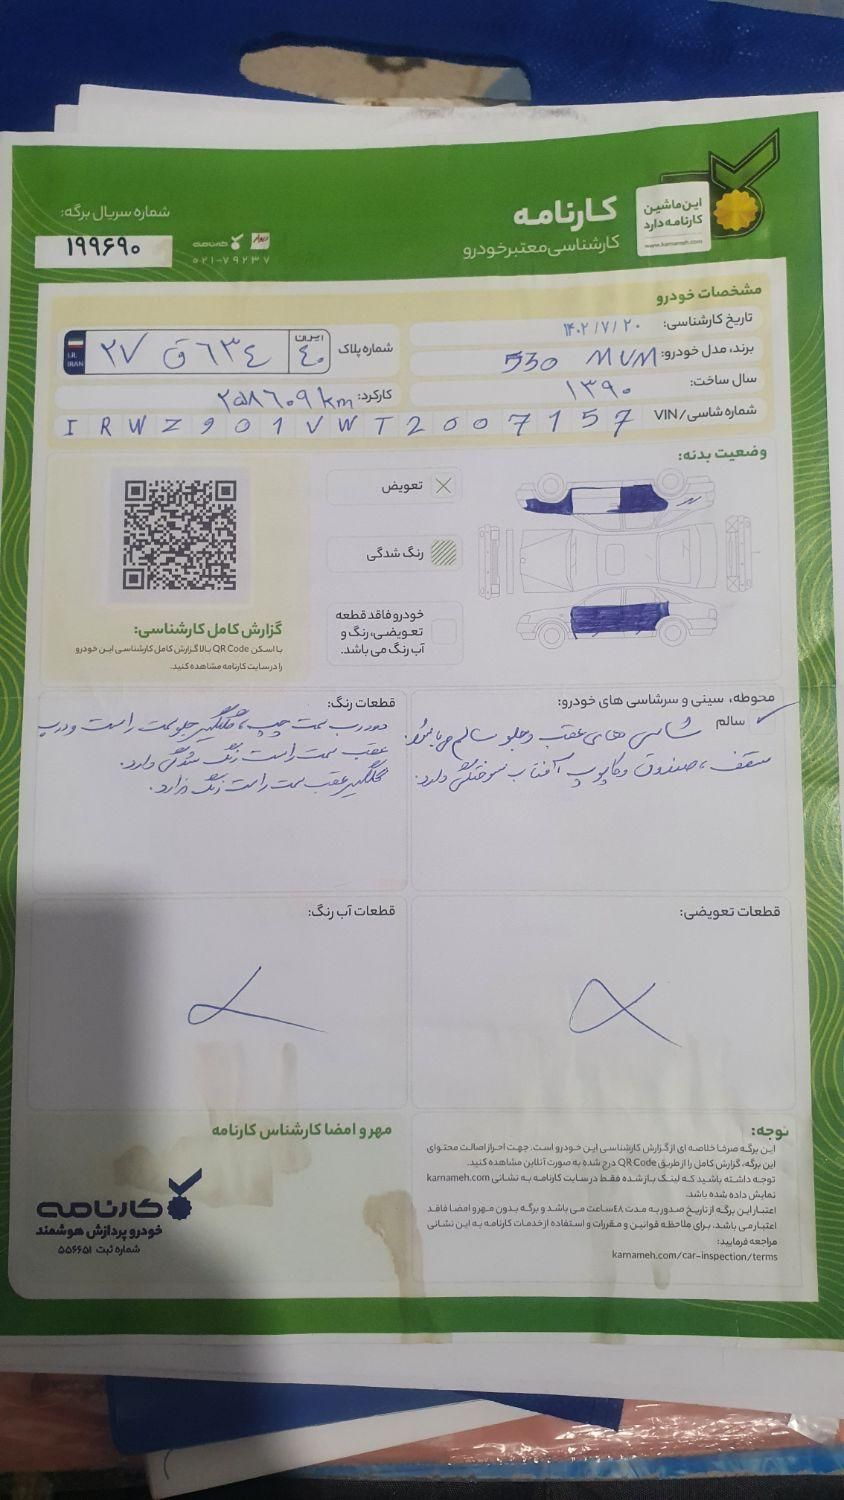 این ماشین
کارنامه دارد
www.karnameh.com
کارنامه
کارشناسی معتبر خودرو
شماره سریال برگه:
۱۹۹۶۹۰
دیوار کارنامه
۰۲۱-۷۹۲۳۷
مشخصات خودرو
تاریخ کارشناسی: ۱۴۰۲/۷/۲۰
شماره پلاک ۲۷ ق ۶۳۴ ایران ۴۰
I.R.
IRAN
برند، مدل خودرو: MVM 530
سال ساخت: ۱۳۹۰
کارکرد: ۲۵۸۶۰۹ km
شماره شاسی/VIN
I R W Z 9 0 1 V W T 2 0 0 7 1 5 7
وضعیت بدنه:
تعویض
رنگ شدگی
خودرو فاقد قطعه
تعویضی، رنگ و
آب رنگ می باشد.
گزارش کامل کارشناسی:
با اسکن QR Code بالا گزارش کامل کارشناسی این خودرو
را در سایت کارنامه مشاهده کنید.
محوطه، سینی و سرشاسی های خودرو:
سالم
شاسی های عقب و جلو سالم میباشد.
سقف، صندوق و کاپوت آفتاب سوختگی دارد.
قطعات رنگ:
دو درب سمت چپ، گلگیر جلو سمت راست و درب
عقب سمت راست رنگ شدگی دارد.
گلگیر عقب سمت راست رنگ دارد.
قطعات تعویضی:
قطعات آب رنگ:
توجه:
این برگه صرفا خلاصه ای از گزارش کارشناسی این خودرو است. جهت احراز اصالت محتوای
این برگه، گزارش کامل را از طریق QR Code درج شده به صورت آنلاین مشاهده کنید.
توجه داشته باشید که لینک باز شده فقط در سایت کارنامه به نشانی karnameh.com
نمایش داده شده باشد.
اعتبار این برگه از تاریخ صدور به مدت ۴۸ ساعت می باشد و برگه بدون مهر و امضا فاقد
اعتبار می باشد. برای ملاحظه قوانین و مقررات و استفاده از خدمات کارنامه به این نشانی
مراجعه فرمایید:
karnameh.com/car-inspection/terms
مهر و امضا کارشناس کارنامه
کارنامه
خودرو پردازش هوشمند
شماره ثبت ۵۵۶۶۵۱